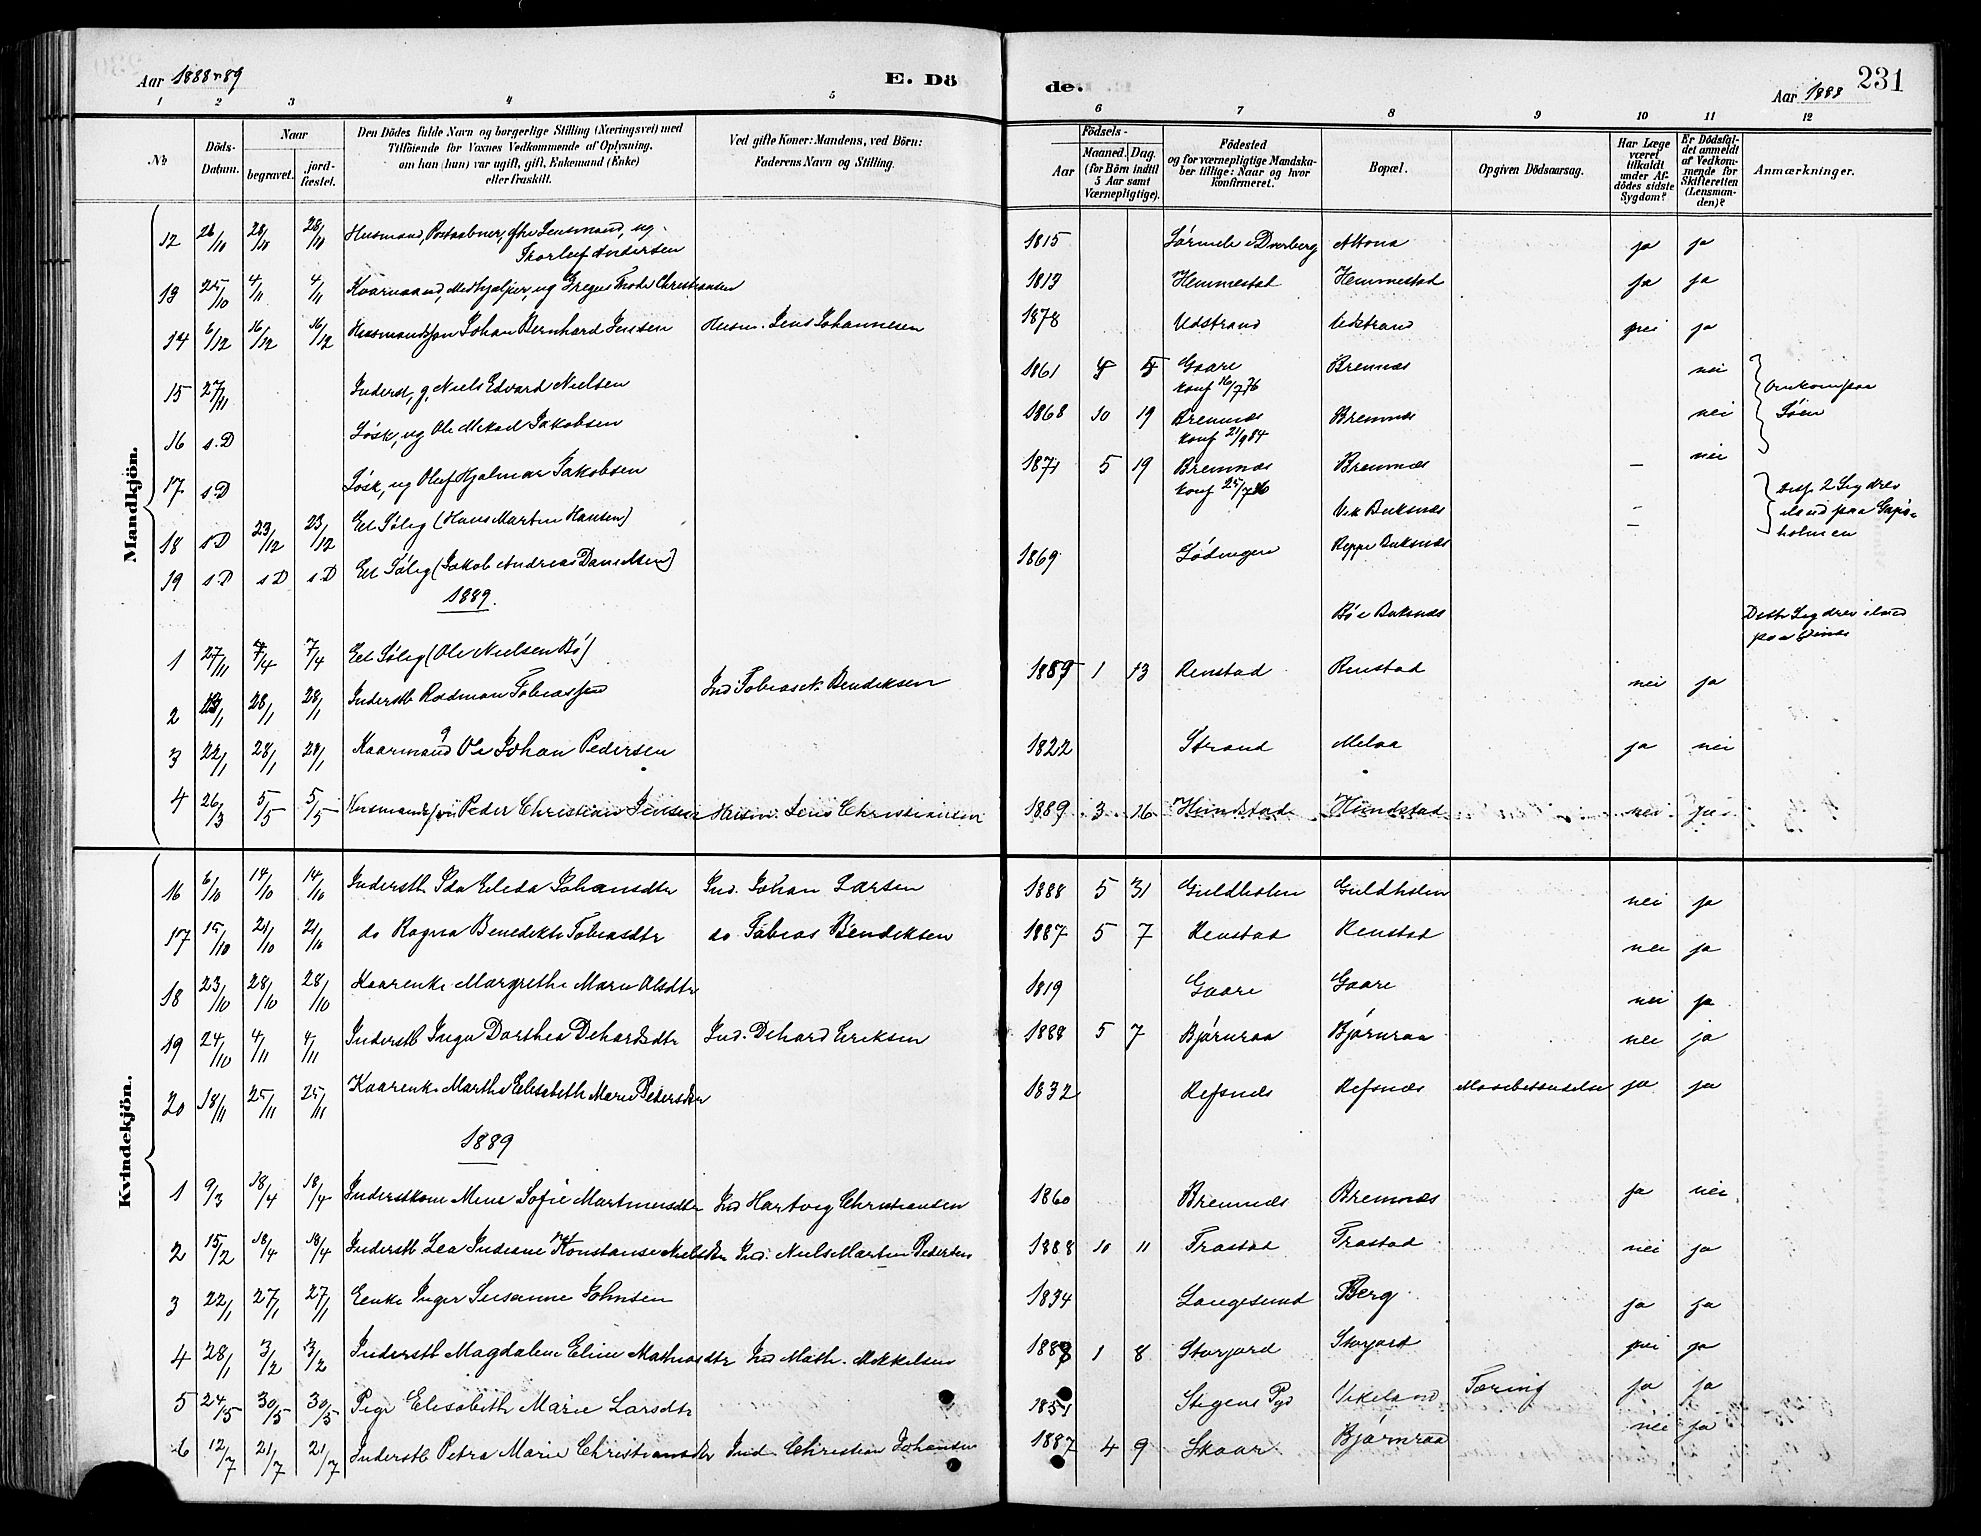 Aar 1888-89
E. Dö
de.
Aar 1888
231
1 2 3 4 5 6 7 8 9 10 11 12
No
Döds-Datum.
Naar
begravet.
jord-fæstet.
Den Dödes fulde Navn og borgerlige Stilling (Næringsvei) med
Tilföiende for Voxnes Vedkommende af Oplysning,
om han (hun) var ugift, gift, Enkemand (Enke)
eller fraskilt.
Ved gifte Koner: Mandens, ved Börn:
Faderens Navn og Stilling.
Födsels-
Aar
Maaned. Dag.
(for Börn indtil
5 Aar samt
Værnepligtige).
Födested
og for værnepligtige Mandska-
ber tillige: Naar og hvor
konfirmeret.
Bopæl.
Opgiven Dödsaarsag.
Har Læge
været
tilkaldt
under Af-
dödes sidste
Sygdom?
Er Dödsfal-
det anmeldt
af Vedkom-
mende for
Skifteretten
(Lensman-
den)?
Anmærkninger.
Mandkjön.
12 26/10 28/10 28/10 Husmand, Postaabner, Lensmand, ug. Thorleif Andersen 1815 Dverberg Altona ja ja
13 25/10 4/11 4/11 Kaarmand, Medhjælper, ug Gregus Frode Christiansen 1813 Hemmestad Hemmestad ja ja
14 6/12 16/12 16/12 Husmandssøn Johan Bernhard Jensen Husm. Jens Johannesen 1878 Vedstrand Vedstrand nei ja
15 27/11 Inderst, g, Niels Edvard Nielsen 1861 5 Gaare konf 16/7 76 Bremnæs nei Omkom paa
16 s.D Løsk, ug Ole Mikal Jakobsen 1868 10 19 Bremnæs konf 21/9 84 Bremnæs nei Søen
17 s.D Løsk, ug Oluf Hjalmar Jakobsen 1871 5 19 Bremnæs konf 25/7 86 Bremnæs - nei
18 s.D 23/12 23/12 Et Sølig (Hans Martin Hansen) Vik Buksnæs - 2 Lig drev iland paa holmen
19 s.D s.D s.D Et Sølig (Jakob Andreas Danielsen) 1869 Lødingen Reppe Buksnæs
1889.
1 27/11 7/4 7/4 Et Sølig (Ole Nielsen Bø) Bø i Buksnæs Dette Lig drev iland paa
2 28/1 28/1 Inderstb Rodman Tobiassen Ind Tobias N. Bendiksen 1889 1 13 Renstad Renstad nei ja
3 22/1 28/1 28/1 Kaarmand g Ole Johan Pedersen 1822 Strand Melaa ja nei
4 26/3 5/5 5/5 Husmandssøn Peder Christian Jensen Husm. Jens Christiansen 1889 3 16 Hundstad Hundstad nei ja
Kvindekjön.
16 6/10 14/10 14/10 Inderstb Ida Elida Johansdtr Ind. Johan Larsen 1888 5 31 Guldholm Guldholm nei ja
17 15/10 21/10 21/10 do Ragna Benedikte Tobiasdtr do Tobias Bendiksen 1887 5 7 Renstad Renstad nei ja
18 23/10 28/10 28/10 Kaarenke Margrethe Marie Olsdtr 1819 Gaare Gaare nei ja
19 24/10 4/11 4/11 Inderstb Inga Dorthea Dehardsdtr Ind. Dehard Eriksen 1888 5 7 Bjørnraa Bjørnraa nei ja
20 18/11 25/11 25/11 Kaarenke Marthe Elisabeth Marie Pedersdtr 1832 Refsnæs Refsnæs ja ja
1889
1 9/3 18/4 18/4 Inderstkone Mine Sofie Martinusdtr Ind Hartvig Christiansen 1860 Bremnæs Bremnæs ja nei
2 15/2 18/4 18/4 Inderstb Lea Indiane Konstanse Nielsdtr Ind. Niels Martin Pedersen 1888 10 11 Frastad Frastad nei ja
3 22/1 27/1 27/1 Enke Inger Susanne Johnsen 1834 Langesund Berg ja ja
4 28/1 3/2 3/2 Inderstb Magdalene Eline Mathiasdtr Ind Math. Mikkelsen 1888 1 8 Storjord Storjord nei ja
5 24/5 30/5 30/5 Pige Elisabeth Marie Larsdtr 1851 Stegens Pgd Vikeland Tæring ja ja
6 12/7 21/7 21/7 Inderstb Petra Marie Christiansdtr Ind Christian Johansen 1887 4 9 Skaar Bjørnraa nei ja